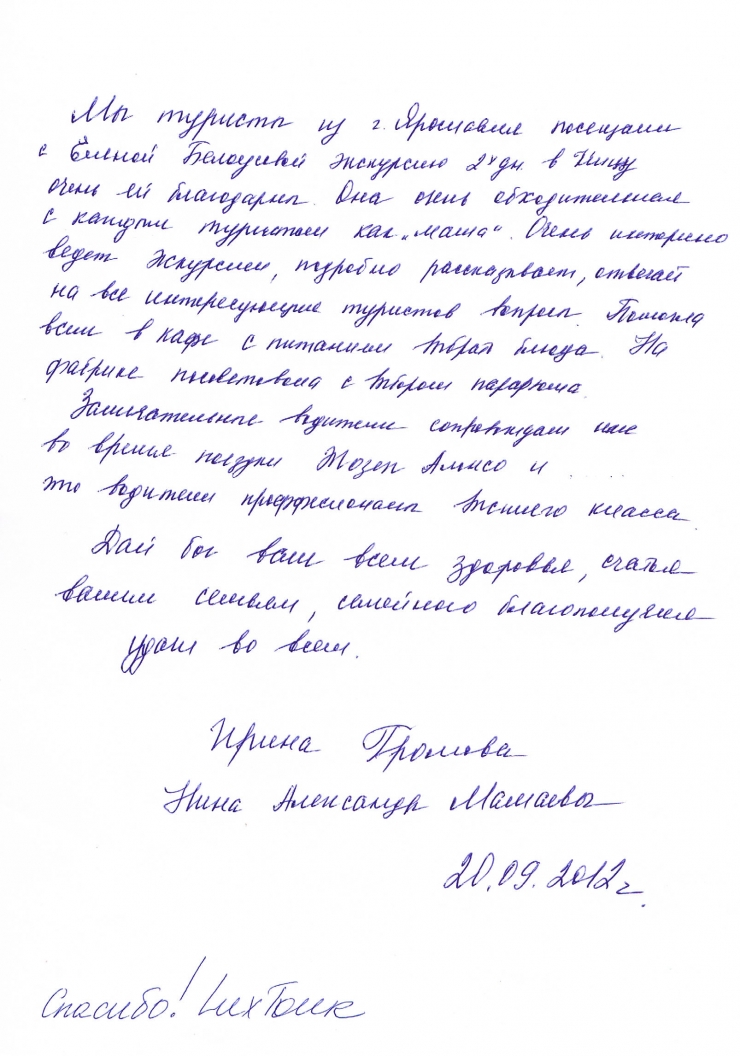 Мы туристы из г. Ярославля посещали
с Еленой Белоусовой экскурсию 2х дн. в Ниццу
очень ей благодарны. Она очень обходительная
с каждым туристом как „мама“. Очень интересно
ведет экскурсии, подробно рассказывает, отвечает
на все интересующие туристов вопросы. Помогла
всем в кафе с питанием выбрать блюда. На
фабрике посоветовала с выбором парфюма.
Замечательные водители сопровождали нас
во время поездки Жозеп Алонсо и ....
это водители профессионалы высшего класса.
Дай бог вам всем здоровья, счастья
вашим семьям, семейного благополучия
удачи во всем.
Ирина Громова
Нина Александр Мамаевы
20.09.2012г.
Спасибо!